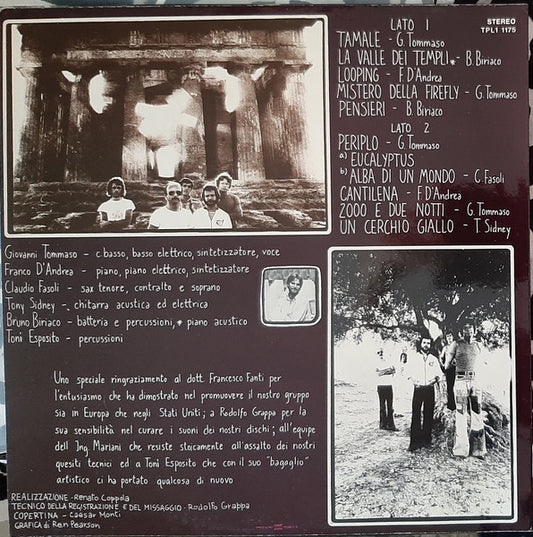 LATO 1
STEREO
TPL1 1175
TAMALE - G. Tommaso
LA VALLE DEI TEMPLI * - B. Biriaco
LOOPING - F. D'Andrea
MISTERO DELLA FIREFLY - G. Tommaso
PENSIERI - B. Biriaco
LATO 2
PERIPLO - G. Tommaso
a) EUCALYPTUS
b) ALBA DI UN MONDO - C Fasoli
CANTILENA - F. D'Andrea
2000 E DUE NOTTI - G. Tommaso
UN CERCHIO GIALLO - T Sidney
Giovanni Tommaso - c. basso, basso elettrico, sintetizzatore, voce
Franco D'Andrea - piano, piano elettrico, sintetizzatore
Claudio Fasoli - sax tenore, contralto e soprano
Tony Sidney - chitarra acustica ed elettrica
Bruno Biriaco - batteria e percussioni, * piano acustico
Toni Esposito - percussioni
Uno speciale ringraziamento al dott. Francesco Fanti per
l'entusiasmo che ha dimostrato nel promuovere il nostro gruppo
sia in Europa che negli Stati Uniti; a Rodolfo Grappa per la
sua sensibilità nel curare i suoni dei nostri dischi; all'equipe
dell' Ing. Mariani che resiste stoicamente all'assalto dei nostri
quesiti tecnici ed a Toni Esposito che con il suo "bagaglio"
artistico ci ha portato qualcosa di nuovo
REALIZZAZIONE - Renato Coppola
TECNICO DELLA REGISTRAZIONE E DEL MISSAGGIO - Rodolfo Grappa
COPERTINA - Caesar Monti
GRAFICA di Ren Pearson